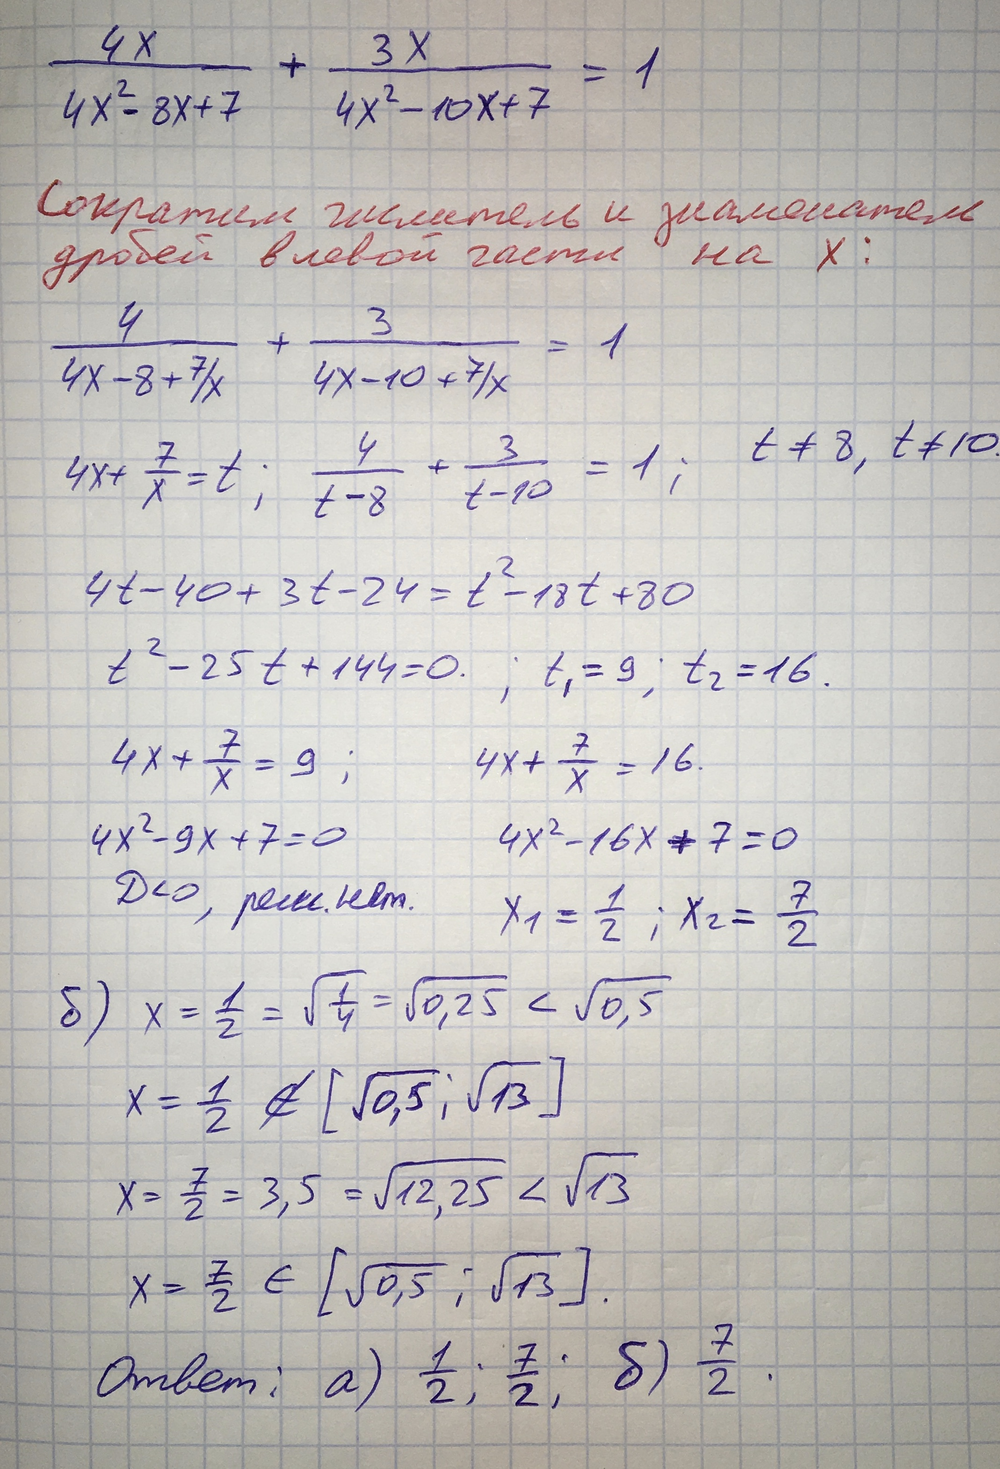 4x/(4x²-8x+7) + 3x/(4x²-10x+7) = 1
Сократим числитель и знаменатель
дробей в левой части на x:
4/(4x-8+7/x) + 3/(4x-10+7/x) = 1
4x+7/x=t; 4/(t-8) + 3/(t-10) = 1; t≠8, t≠10.
4t-40+3t-24=t²-18t+80
t²-25t+144=0. ; t₁=9; t₂=16.
4x+7/x=9; 4x+7/x=16.
4x²-9x+7=0 4x²-16x+7=0
D<0, реш. нет. x₁=1/2; x₂=7/2
б) x=1/2=√(1/4)=√0,25<√0,5
x=1/2 ∉ [√0,5; √13]
x=7/2=3,5=√12,25<√13
x=7/2 ∈ [√0,5; √13].
Ответ: а) 1/2; 7/2; б) 7/2.